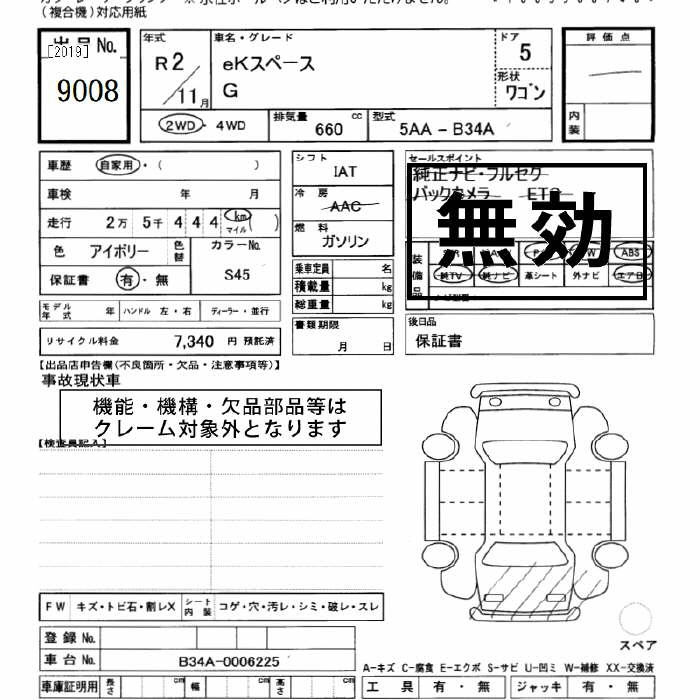 （複合機）対応用紙
出品No. [2019] 9008
年式 R2/11月
車名・グレード eKスペース G
ドア 5
形状 ワゴン
評価点
内装
2WD・4WD
排気量 660 cc
型式 5AA－B34A
車歴 自家用・（　）
車検 年 月
走行 2万 5千 4 4 4 (km マイル)
色 アイボリー 色替
カラーNo. S45
保証書 有・無
シフト IAT
冷房 AAC
燃料 ガソリン
乗車定員 名
積載量 kg
総重量 kg
セールスポイント
純正ナビ・フルセグ
バックカメラ ETC
無効
装備品
ABS
純TV 純ナビ 革シート 外ナビ エアB
モデル年式 年 ハンドル 左・右 ディーラー・並行
リサイクル料金 7,340 円 預託済
書類期限 月 日
後日品
保証書
【出品店申告欄(不良箇所・欠品・注意事項等)】
事故現状車
機能・機構・欠品部品等は
クレーム対象外となります
【検査員記入】
FW キズ・トビ石・割レX シート内装 コゲ・穴・汚レ・シミ・破レ・スレ
登録No.
車台No. B34A-0006225
車庫証明用 長さ cm 幅 cm 高さ cm
スペア
A－キズ C－腐食 E－エクボ S－サビ U－凹ミ W－補修 XX－交換済
工具 有・無 ジャッキ 有・無